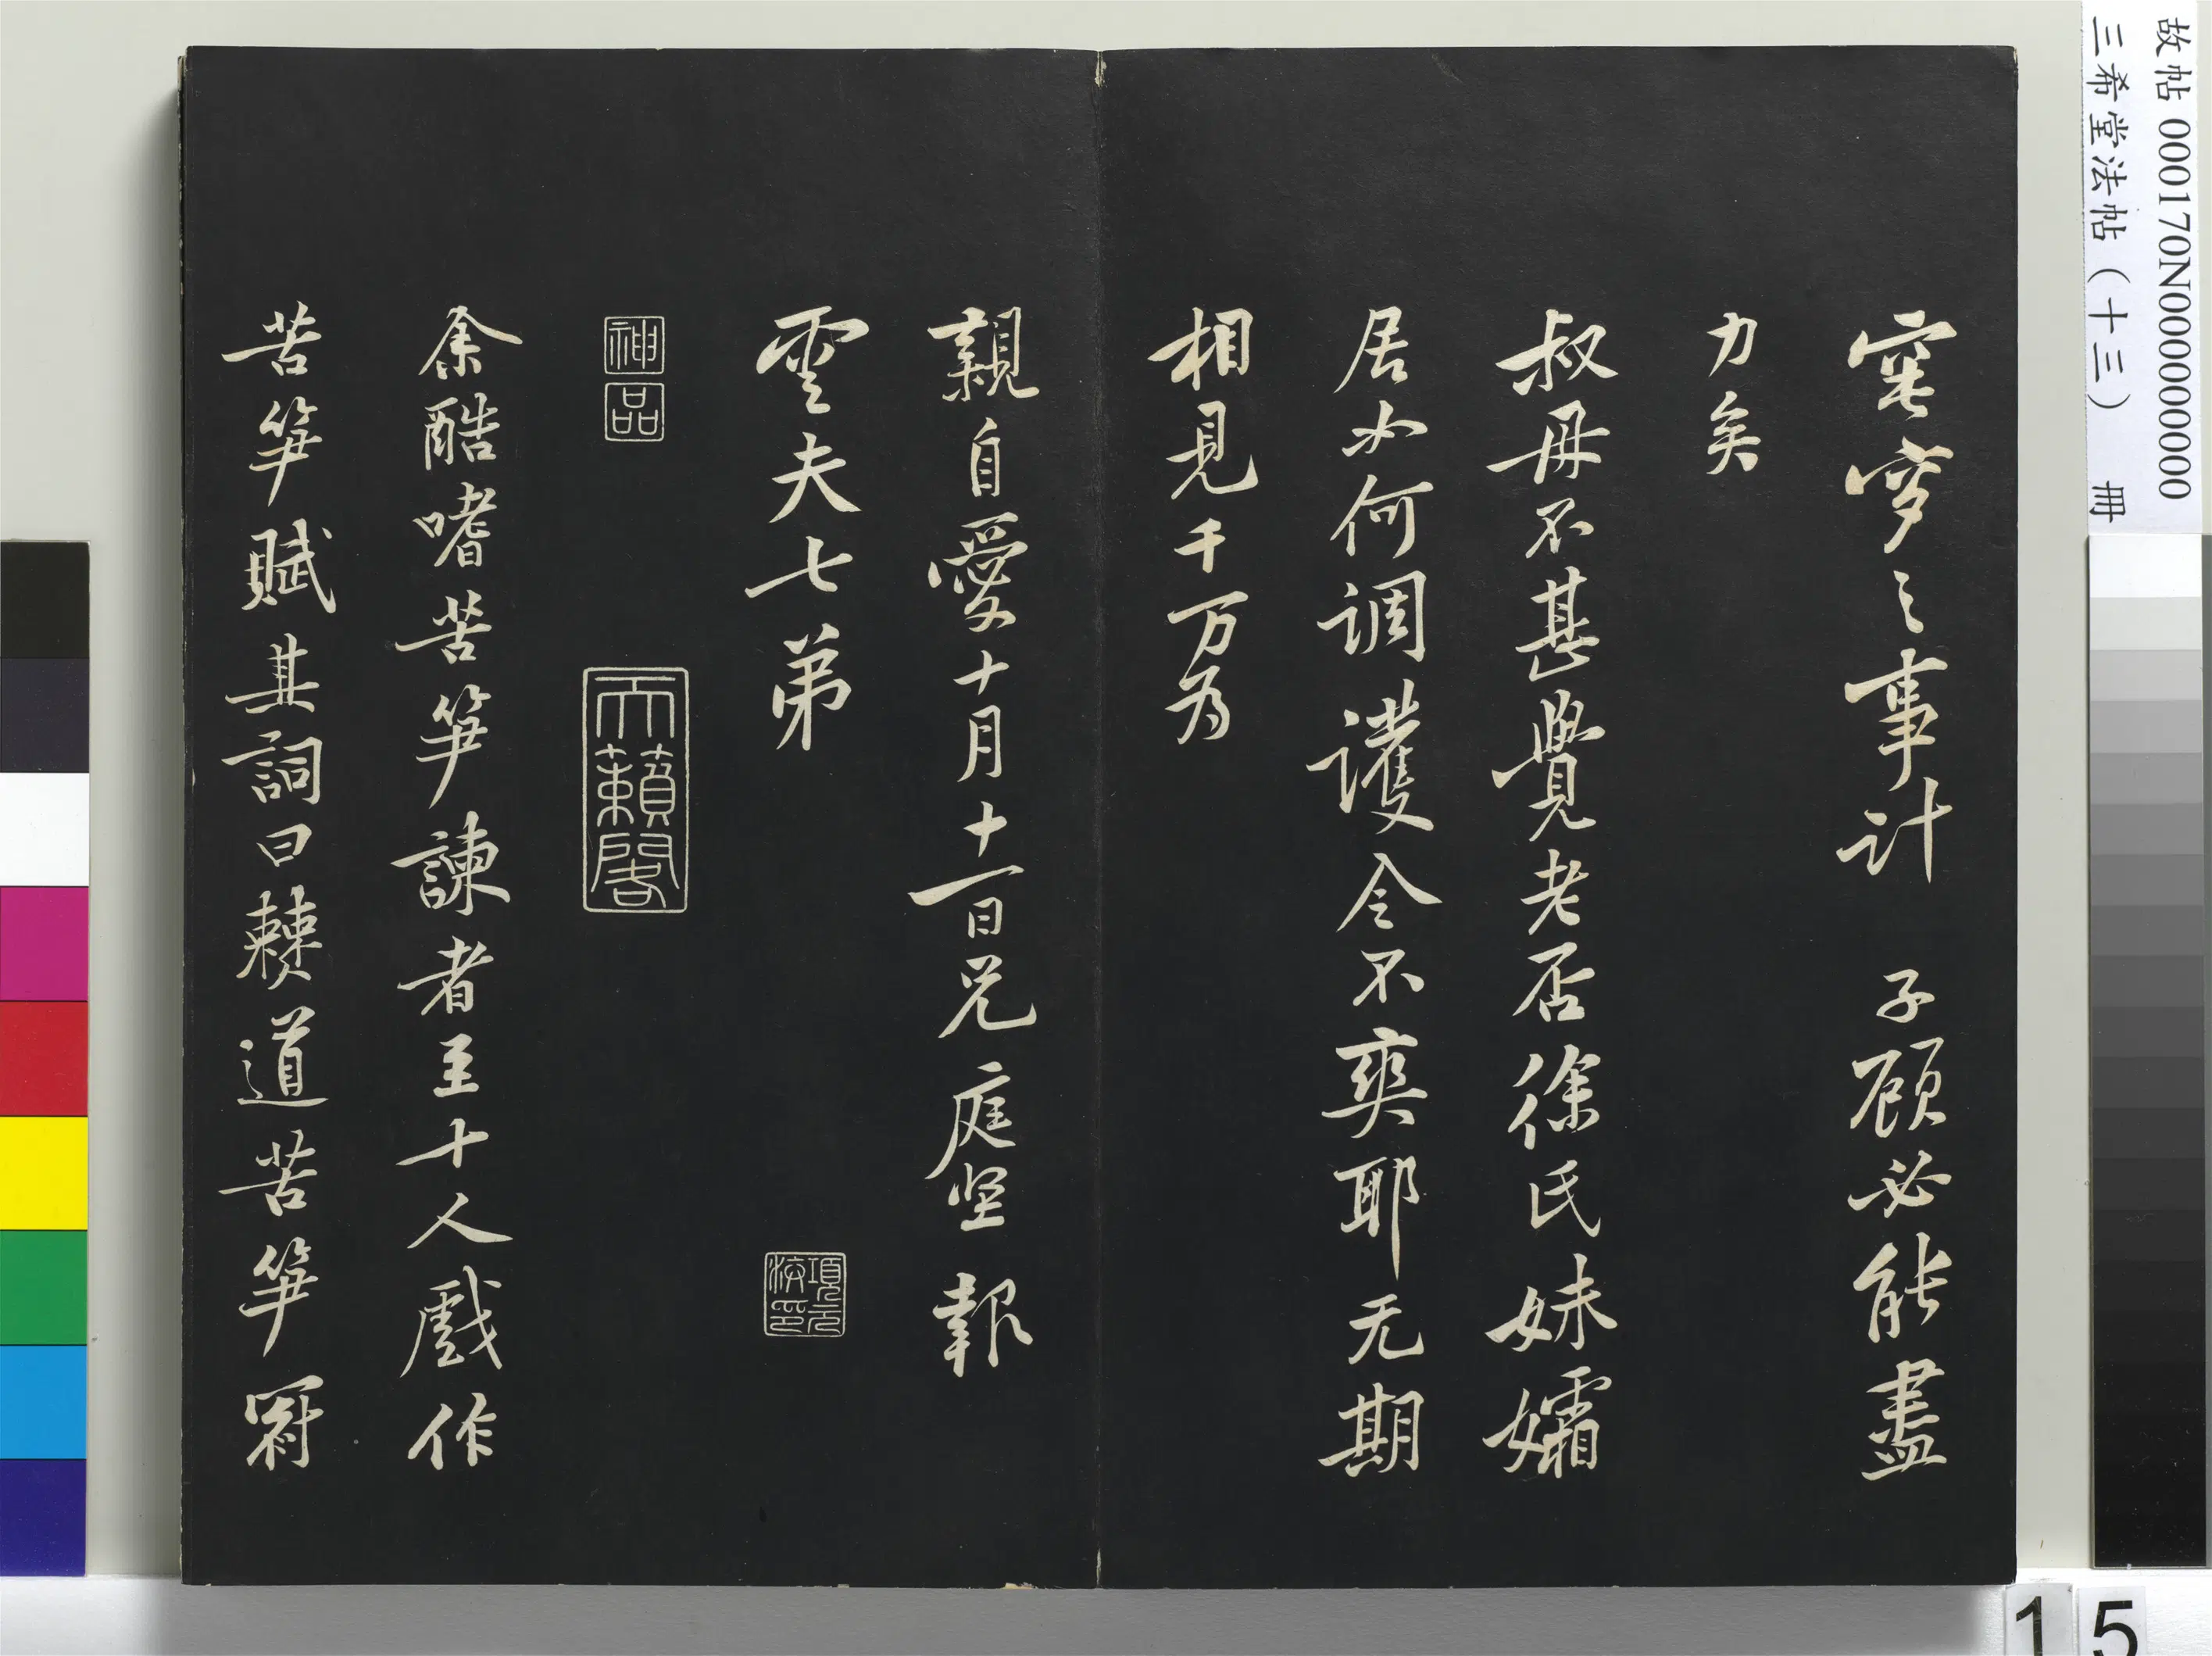 故帖 000170N000000000
三希堂法帖（十三） 冊
窀穸之事計 子顧必能盡
力矣
叔母不甚覺老否徐氏妹孀
居如何調護令不爽耶无期
相見千万為
親自愛十月十一日兄庭坚報
雲夫七弟
項元汴印
神
品
天籟閣
余酷嗜苦笋諫者至十人戲作
苦笋賦其詞曰棘道苦笋冠
15